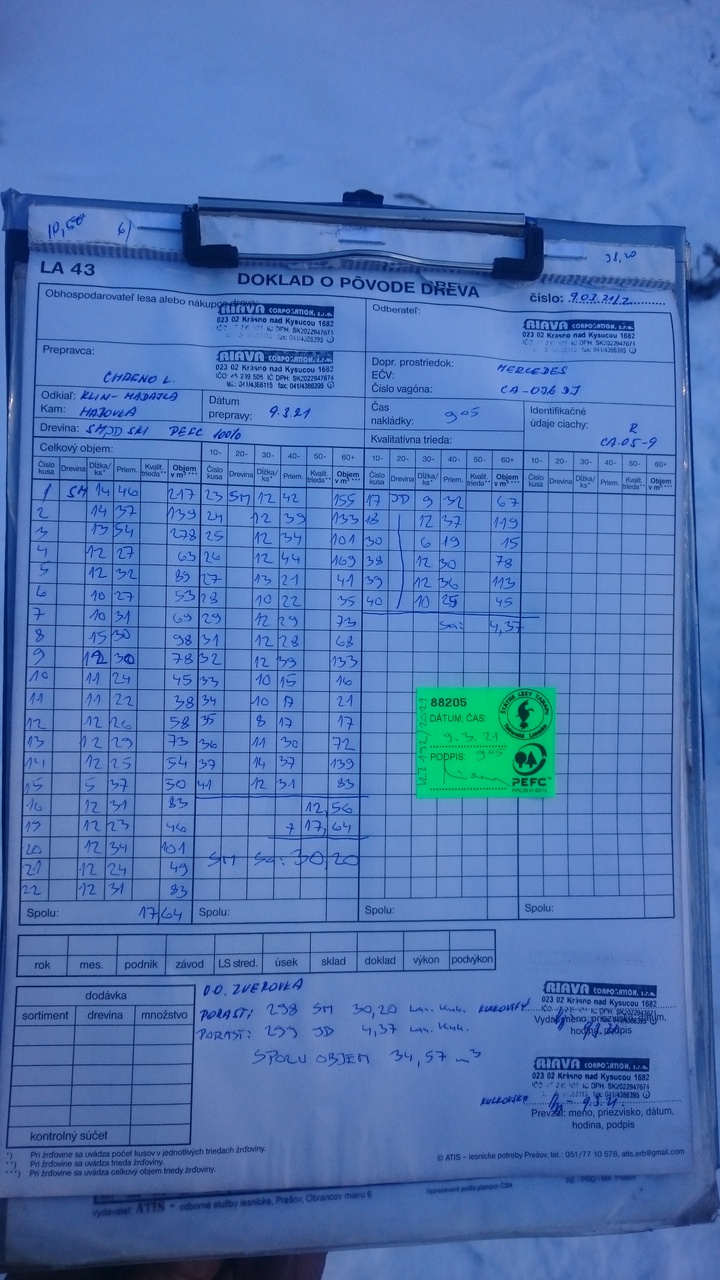 10,50 6/ 31,20
LA 43
DOKLAD O PÔVODE DREVA
číslo: 9.03.21/2
Obhospodarovateľ lesa alebo nákupca dreva:
RIAVA CORPORATION, s.r.o.
023 02 Krásno nad Kysucou 1682
Odberateľ:
RIAVA CORPORATION, s.r.o.
023 02 Krásno nad Kysucou 1682
Prepravca:
RIAVA CORPORATION, s.r.o.
023 02 Krásno nad Kysucou 1682
Dopr. prostriedok: MERCEDES
EČV:
Číslo vagóna:
Odkiaľ:
Kam:
Dátum prepravy: 9.3.21
Čas nakládky: 9 05
Identifikačné údaje ciachy: R
CA.05-9
Drevina: SM, JD SKI PEFC 100%
Kvalitatívna trieda:
Celkový objem: 10- 20- 30- 40- 50- 60+ 10- 20- 30- 40- 50- 60+ 10- 20- 30- 40- 50- 60+
Číslo kusa Drevina Dĺžka/ks* Priem. Kvalit. trieda** Objem v m³ *** Číslo kusa Drevina Dĺžka/ks* Priem. Kvalit. trieda** Objem v m³ *** Číslo kusa Drevina Dĺžka/ks* Priem. Kvalit. trieda** Objem v m³ *** Číslo kusa Drevina Dĺžka/ks* Priem. Kvalit. trieda** Objem v m³ ***
1 SM 14 46 217 23 SM 12 42 155 17 JD 9 32 67
2 14 37 139 24 12 39 133 18 12 37 119
3 13 54 278 25 12 34 101 30 6 19 15
4 12 27 63 26 12 44 169 38 12 30 78
5 12 32 89 27 13 21 41 39 12 36 113
6 10 27 53 28 10 22 35 40 10 25 45
7 10 31 69 29 12 29 73 Sa: 4,37
8 15 30 98 31 12 28 68
9 12 30 78 32 12 39 133
10 11 24 45 33 10 15 16
11 11 22 38 34 10 17 21
12 12 26 58 35 8 17 17
13 12 29 73 36 11 30 72
14 12 25 54 37 14 37 139
15 5 37 50 41 12 31 83
16 12 31 83 12,56
19 12 23 46 + 17,64
20 12 34 101 SM Sa: 30,20
21 12 24 49
22 12 31 83
88205
DÁTUM; ČAS:
9.3.21
PODPIS: 9 05
PEFC
Spolu: 17,64 Spolu: Spolu: Spolu:
rok mes. podnik závod LS stred. úsek sklad doklad výkon podvýkon
dodávka
sortiment drevina množstvo
kontrolný súčet
D.O. ZVEROVKA
PORAST: 298 SM 30,20
PORAST: 299 JD 4,37
SPOLU OBJEM 34,57 m³
RIAVA CORPORATION, s.r.o.
023 02 Krásno nad Kysucou 1682
Vydal: meno, priezvisko, dátum,
hodina, podpis
RIAVA CORPORATION, s.r.o.
023 02 Krásno nad Kysucou 1682
9.3.21
Prevzal: meno, priezvisko, dátum,
hodina, podpis
*) Pri žrďovine sa uvádza počet kusov v jednotlivých triedach žrďoviny.
**) Pri žrďovine sa uvádza trieda žrďoviny.
***) Pri žrďovine sa uvádza celkový objem triedy žrďoviny.
© ATIS – lesnícke potreby Prešov, tel.: 051/77 10 578, atis.erb@gmail.com
Vydavateľ: ATIS – odborné služby lesnícke, Prešov, Obrancov mieru 6